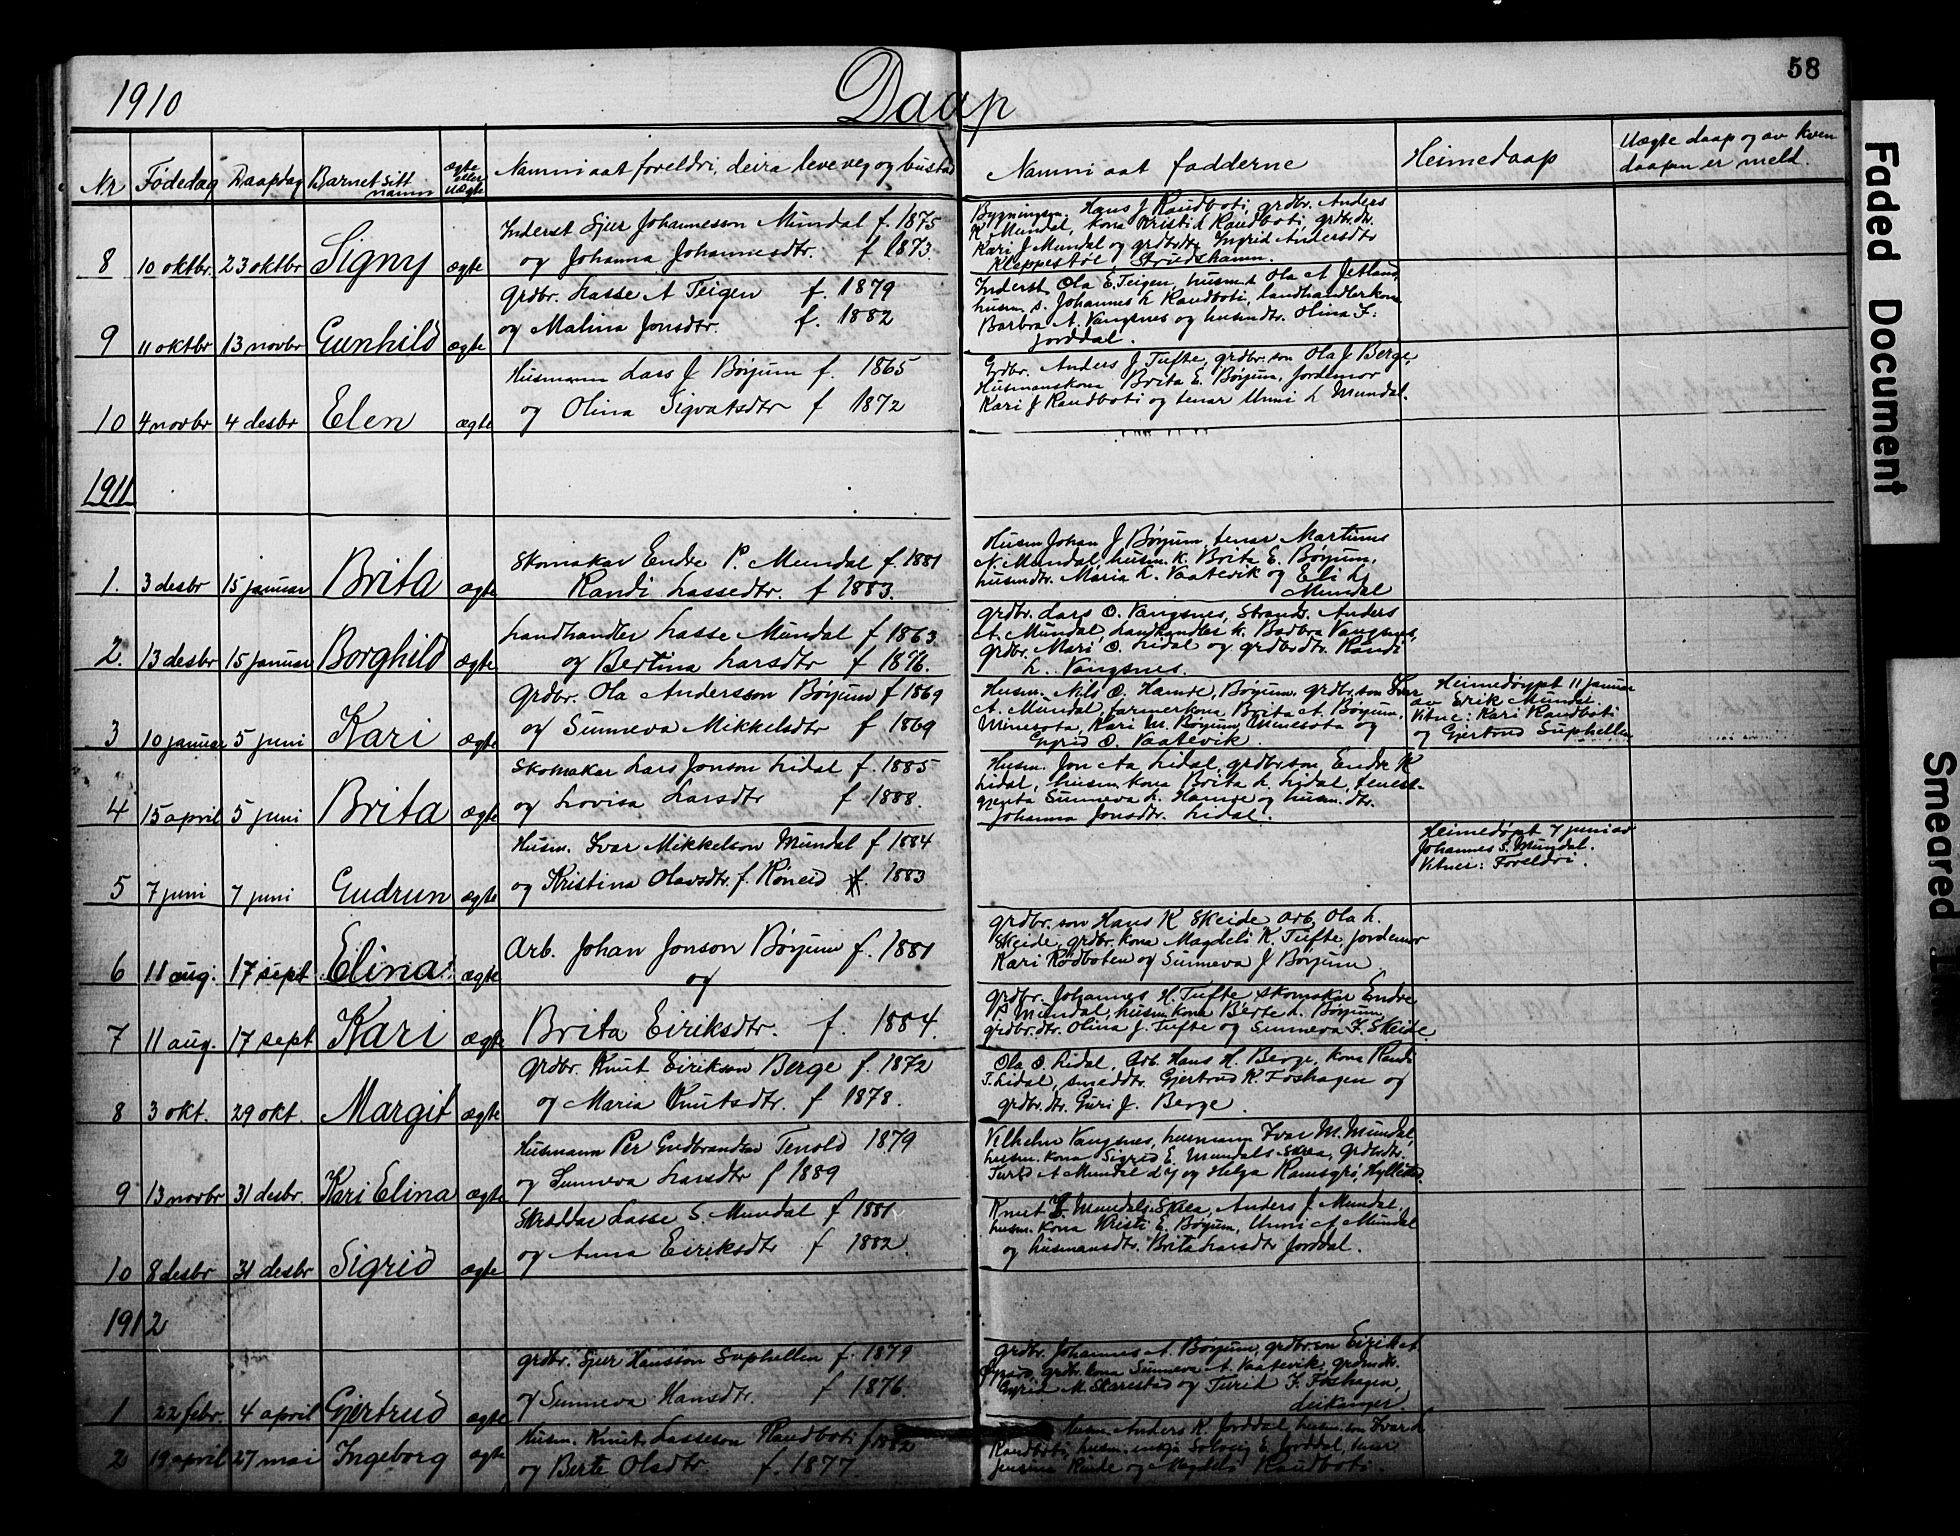 58
1910
Daap
Nr
Fødedag
Daapdag
Barnet sitt
namn
ægte
eller
uægte
Namni aat foreldri, deira leveveg og bustad
Namni aat fadderne
Heimedaap
Uægte daap og av kven
daapen er meld.
8 10 oktbr. 23 oktbr Signy ægte
Inderst Sjur Johannesson Mundal f. 1875
og Johanna Johannesdtr. f 1873.
Hans J Raudboti, grdbr. Anders
K Mundal, kona Kristi d Raudboti, grdbr.
Kari J Mundal og grdbrdtr. Ingrid Andersdtr
9 11 oktbr 13 novbr Gunhild ægte
Grdbr. Lasse A Teigen f. 1879
og Malina Jonsdtr. f. 1882
Inderst Ola E. Teigen, husm. Ola A Jetland,
husm. s. Johannes L Raudboti, landhandlerkona
Barbra A. Vangsnes og husmdtr. Olina F.
Jorddal.
10 4 novbr 4 desbr Elen ægte
Husmann Lars J Bøyum f. 1865
og Olina Sigvatsdtr f 1872
Grdbr. Anders J Tufte, grdbr. son Ola J Berge,
Husmanskona Brita E. Bøyum, jordemor
Kari J Raudboti og tenar Unni L Mundal.
1911
1. 3 desbr 15 januar Brita ægte
Skomakar Endre P. Mundal f. 1881
Randi Lassedtr. f 1883.
Husm Johan J Bøyum, tenar Martinus
N. Mundal, husm. k. Brita E. Bøyum,
husmdtr. Maria L. Vaatevik og Eli L
Mundal
2. 13 desbr 15 januar Borghild ægte
Landhandler Lasse Mundal f 1863
og Bertina Larsdtr f 1876.
grdbr. Lars O. Vangsnes, Strands. Anders
A. Mundal, Landhandler k. Barbra Vangsnes,
grdbr. Mari O. Lidal og grdbrdtr. Randi
L. Vangsnes.
3 10 januar 5 juni Kari ægte
Grdbr. Ola Andersson Bøyum f 1869
og Sunneva Mikkelsdtr f 1869
Husm. Nils O. Hamre, Bøyum, grdbr. son Ivar
A. Mundal, farmerkona Brita A. Bøyum,
Minesota, Kari M. Bøyum Minesota og
Gyrid O. Vaatevik.
Heimedøypt 11 januar
av Erik Mundal.
Vitne: Kari Raudboti
og Gjertrud Suphellen
4 15 april 5 juni Brita ægte
Skomakar Lars Jonson Lidal f. 1885
og Lovisa Larsdtr f 1888.
Husm. Jon Aa Lidal, grdbrson Endre K
Lidal, husm. kona Brita L. Lidal, tenest-
gjenta Sunneva L. Hamre og husm. dtr.
Johanna Jonsdtr. Lidal.
5 7 juni 7 juni Gudrun ægte
Husm. Ivar Mikkelson Mundal f 1884
og Kristina Olavsdtr. f. Røneid f. 1883
Heimedøpt 7 juni av
Johannes S. Mundal.
Vitnei: Foreldri.
6 11 aug. 17 sept Elina ægte
Arb. Johan Jonson Bøyum f. 1881
og
grdbr. son Hans K Skeide Arb. Ola L.
Skeide, grdbr. kona Magdeli K. Tufte, jordemor
Kari Rødboten og Sunneva J Bøyum
7 11 aug. 17 sept Kari ægte
Brita Eiriksdtr. f. 1884.
grdbr. Johannes H. Tufte, skomakar Endre
P Mundal, husm. kona Berte L. Bøyum,
grdbr. dtr. Olina J. Tufte og Sunneva F. Skeide.
8 3 okt. 29 okt. Margit ægte
grdbr. Knut Eirikson Berge f. 1872
og Maria Knutsdtr. f 1878.
Ola O. Lidal, Arb. Hans H. Berge, kona Randi
T. Lidal, smeddtr. Gjertrud K. Foshagen og
grdbr. dtr. Guri J. Berge.
9 13 novbr 31 desbr. Kari Elina ægte
Husmann Per Gudbrandson Tenold 1879
og Sunneva Larsdtr f 1889
Vilhelm Vangsnes, husmann Ivar M. Mundal,
husm. kona Sigrid E. Mundals Skrea, Grdbrdtr.
A Mundal og Helga
10 8 desbr 31 desbr Sigrid ægte
Lasse S. Mundal f 1881
og Anna Eiriksdtr f 1882.
Knut Mundals Skrea, Anders J. Mundal,
husm. kona Kristi E. Bøyum, Unni A Mundal
og husmansdtr. Brita Larsdtr Jorddal.
1912
1 22 febr. 4 april Gjertrud ægte
grdbr. Sjur Hansson Suphellen f. 1879
og Sunneva Hansdtr. f 1876.
grdbr. Johannes A. Bøyum, grdbr. son Eirik A
grdbr. kona Sunneva A. Vaatevik,
Gyrid M. Skarestad og Turid F. Foshagen,
Leikanger.
2 19 april 27 mai Ingeborg ægte
Husm. Knut Lasseson Raudboti f 1882
og Berte Olsdtr. f. 1877.
Husm. Anders K. Jorddal, husm. son Ivar L
Raudboti, husm. enkje Solveig E. Jorddal, tenar
Jensina Rinde og Magdeli Raudboti.
Faded Document
Smeared